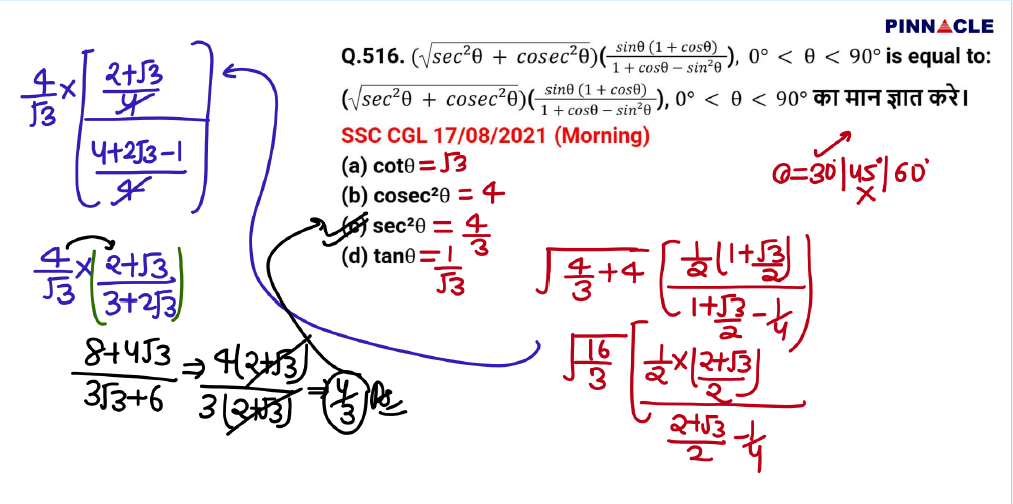 PINNACLE
Q.516. (√sec²θ + cosec²θ)(sinθ (1 + cosθ) / 1 + cosθ − sin²θ), 0° < θ < 90° is equal to:
(√sec²θ + cosec²θ)(sinθ (1 + cosθ) / 1 + cosθ − sin²θ), 0° < θ < 90° का मान ज्ञात करे।
SSC CGL 17/08/2021 (Morning)
(a) cotθ = √3
(b) cosec²θ = 4
(c) sec²θ = 4/3
(d) tanθ = 1/√3
θ=30°|45°|60°
×
√4/3+4 [1/2(1+√3/2) / 1+√3/2−1/4]
√16/3 [1/2×(2+√3/2) / 2+√3/2 −1/4]
4/√3 × [2+√3/4 / 4+2√3−1/4]
4/√3 × (2+√3 / 3+2√3)
8+4√3 / 3√3+6 ⇒ 4(2+√3) / 3(2+√3) ⇒ 4/3